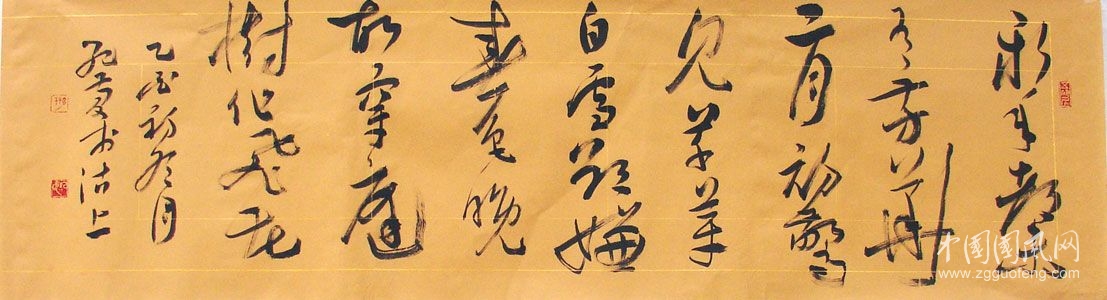 新年都未
有芳華
二月初驚
見草芽
白雪却嫌
春色晚
故穿庭
樹作飛花
乙 初冬月
於沽上
中国国风网
www.zgguofeng.com